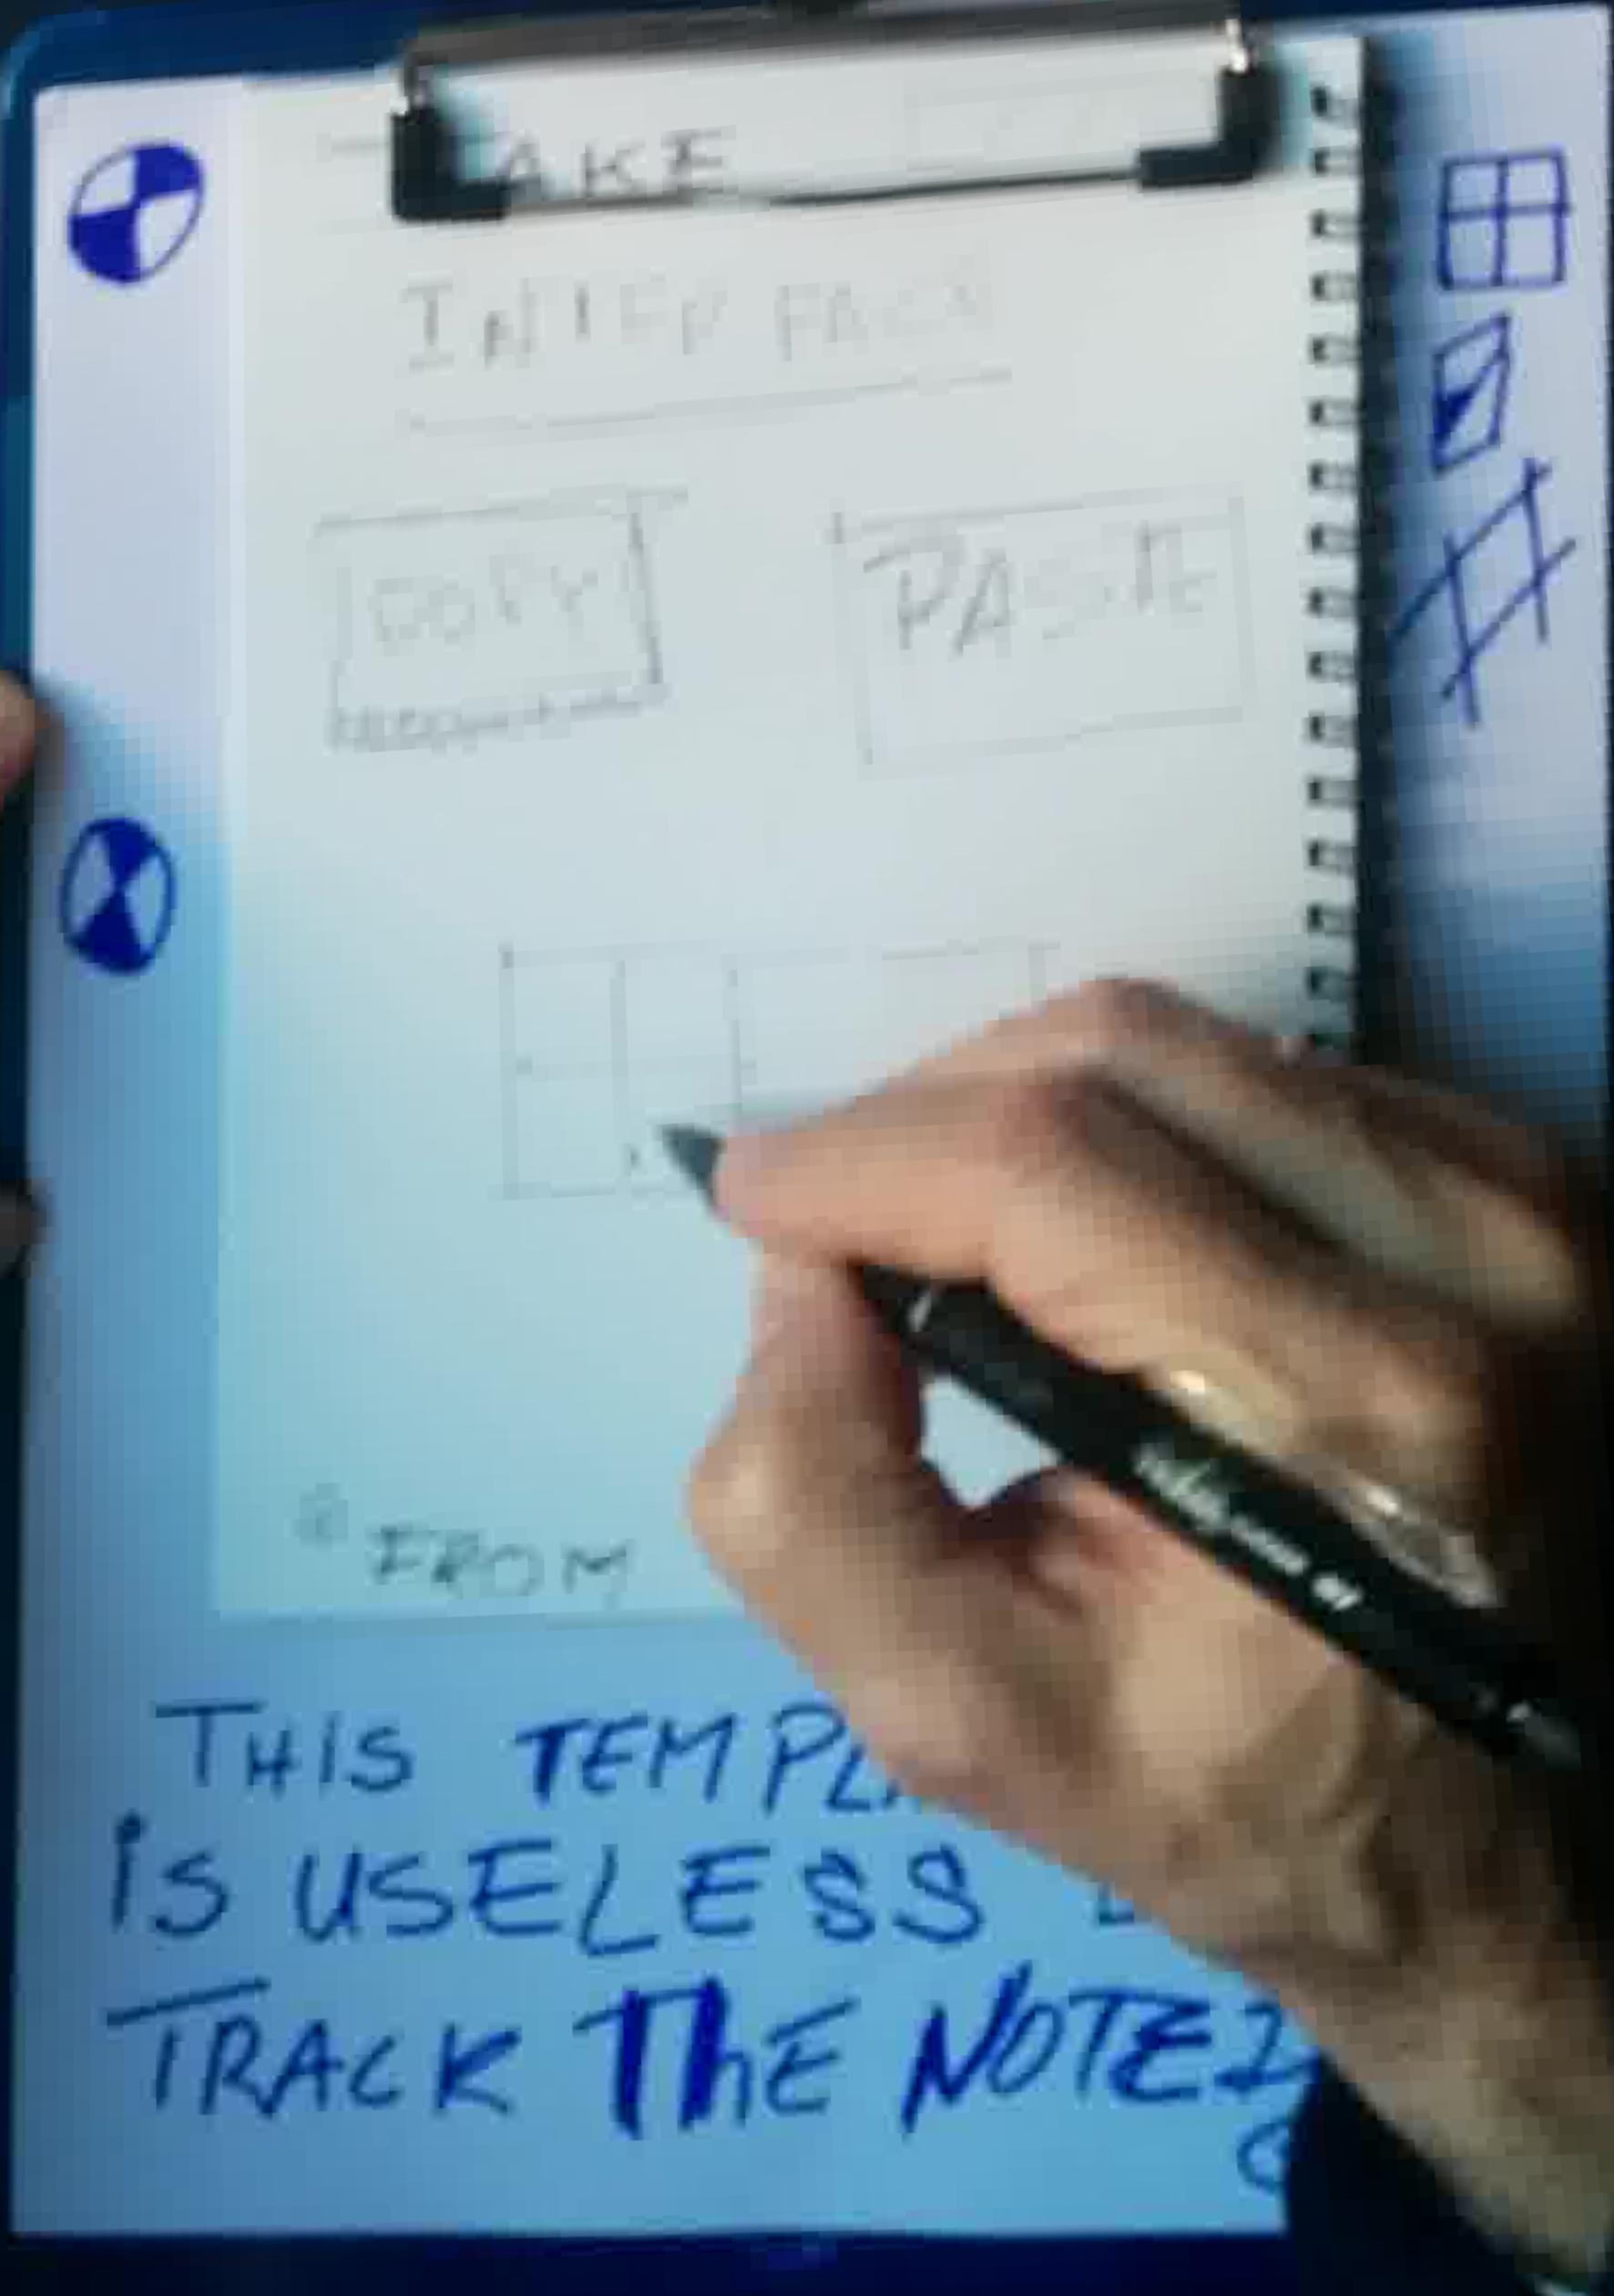 AKE
INTER FACE
COPY PASTE
FROM
THIS TEMPL
iS USELESS
TRACK ThE NOTE